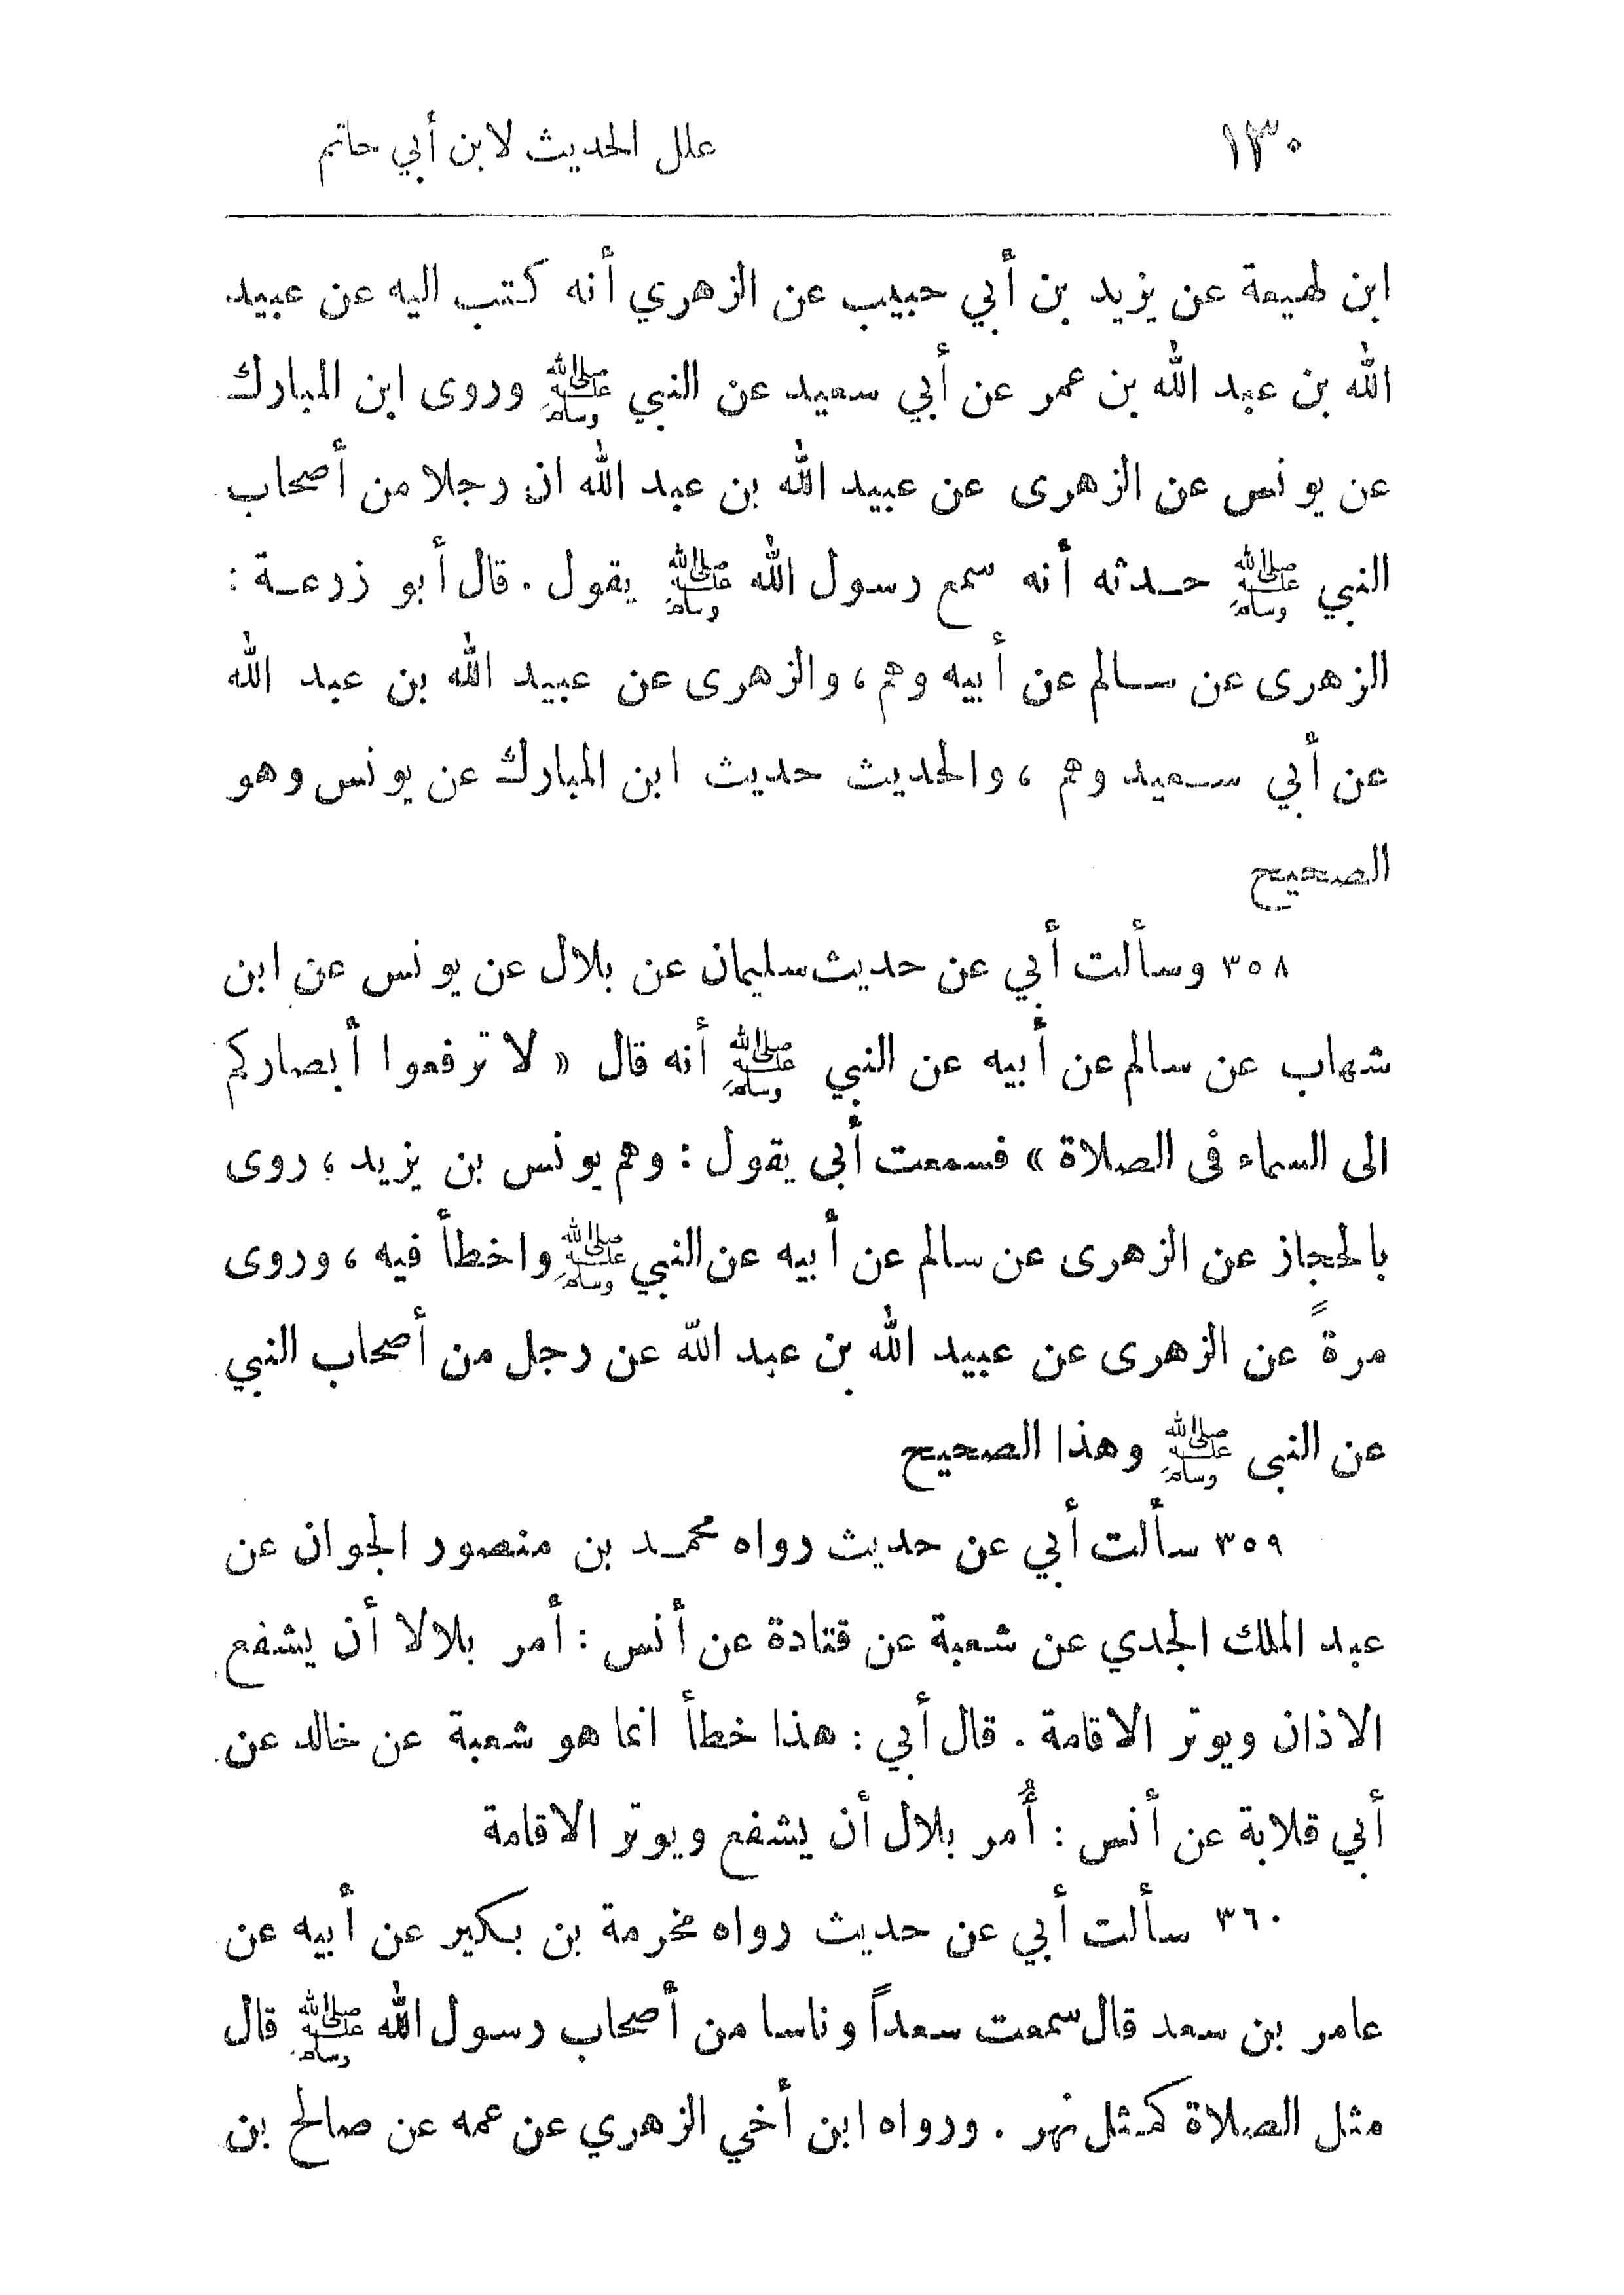 ١٣٠ علل الحديث لابن أبي حاتم
ابن لهيعة عن يزيد بن أبي حبيب عن الزهري أنه كتب اليه عن عبيد
الله بن عبد الله بن عمر عن أبي سعيد عن النبي ﷺ وروى ابن المبارك
عن يونس عن الزهرى عن عبيد الله بن عبد الله ان رجلا من أصحاب
النبي ﷺ حدثه أنه سمع رسول الله ﷺ يقول . قال أبو زرعة :
الزهرى عن سالم عن أبيه وهم ، والزهرى عن عبيد الله بن عبد الله
عن أبي سعيد وهم ، والحديث حديث ابن المبارك عن يونس وهو
الصحيح
٣٥٨ وسألت أبي عن حديث سليمان عن بلال عن يونس عن ابن
شهاب عن سالم عن أبيه عن النبي ﷺ أنه قال « لا ترفعوا أبصاركم
الى السماء فى الصلاة » فسمعت أبى يقول : وهم يونس بن يزيد ، روى
بالحجاز عن الزهرى عن سالم عن أبيه عن النبي ﷺ واخطأ فيه ، وروى
مرةً عن الزهرى عن عبيد الله بن عبد الله عن رجل من أصحاب النبي
عن النبى ﷺ وهذا الصحيح
٣٥٩ سألت أبي عن حديث رواه محمد بن منصور الجوان عن
عبد الملك الجدي عن شعبة عن قتادة عن أنس : أمر بلالا أن يشفع
الاذان ويوتر الاقامة . قال أبي : هذا خطأ انما هو شعبة عن خالد عن
أبي قلابة عن أنس : أُمر بلال أن يشفع ويوتر الاقامة
٣٦٠ سألت أبي عن حديث رواه مخرمة بن بكير عن أبيه عن
عامر بن سعد قال سمعت سعداً وناسا من أصحاب رسول الله ﷺ قال
مثل الصلاة كمثل نهر . ورواه ابن أخي الزهري عن عمه عن صالح بن